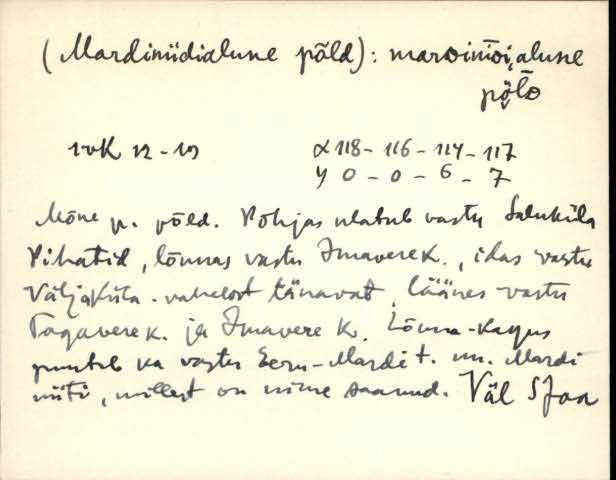 (Mardiniidialune põld): maroinìoi,alune
põlo
12 - 10 α 118 - 116 - 114 - 117
y 0 - 0 - 6 - 7
Mõne p. põld. Põhjas ulatub vastu Saluküla
Pihatid, lõunas vastu Imavere k., idas vastu
Väljaküla vahelost tänavat, läänes vastu
Tagavere k. ja Imavere k. Lõuna-kagus
puutub ka vastu Eeru-Mardi t. nn. Mardi
niiti, millest on nime saanud. Väl SJaa